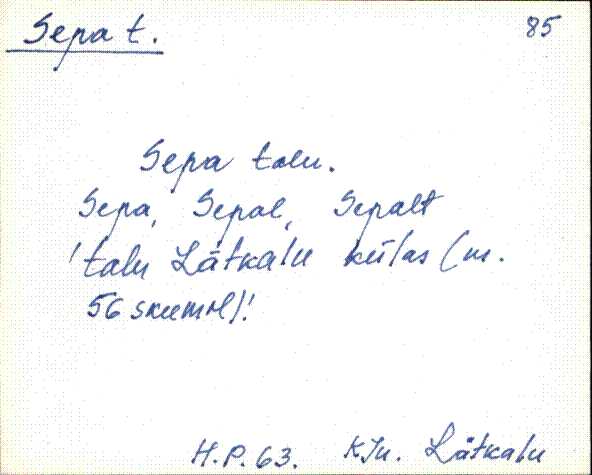 Sepa t.
85
Sepa talu.
Sepa, Sepal, Sepalt
'talu Lätkalu külas (m.
56 skeemil)'
H.P. 63. KJn. Lätkalu